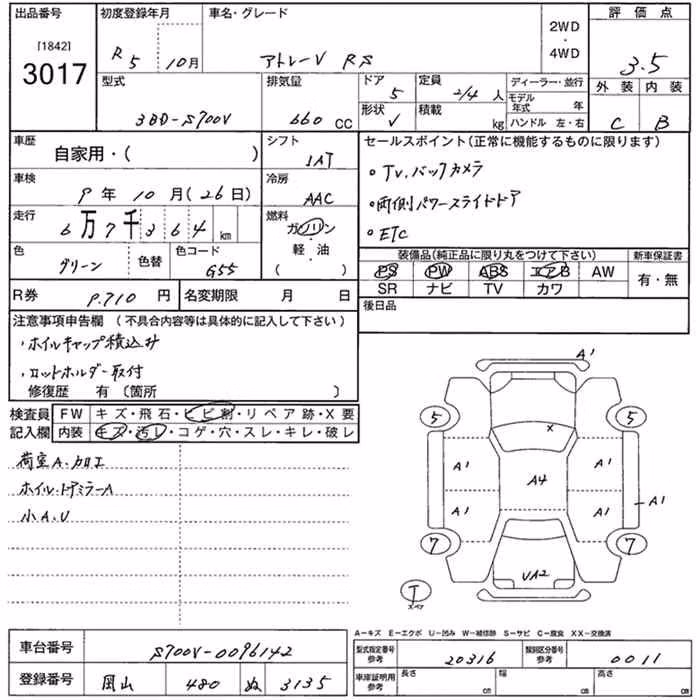 出品番号 初度登録年月 車名・グレード 評価点
[1842] R5 10月 アトレーV RS 2WD・4WD 3.5
3017
型式 排気量 ドア 5 定員 2/4人 ディーラー・並行 外装 内装
3BD-S700V 660CC 形状 V 積載 kg モデル年式 年 ハンドル 左・右 C B
車歴 自家用・( ) シフト 1AT セールスポイント(正常に機能するものに限ります)
車検 9年10月(26日) 冷房 AAC ・TV.バックカメラ
走行 6万7千364km 燃料 ガソリン・軽・油 ( ) ・両側パワースライドドア
・ETC
色 グリーン 色替 色コード G55 装備品(純正品に限り丸をつけて下さい) 新車保証書
PS PW ABS エアB AW 有・無
SR ナビ TV カワ
R券 9.710円 名変期限 月 日 後日品
注意事項申告欄(不具合内容等は具体的に記入して下さい)
・ホイルキャップ積込み
・ロットホルダー取付
修復歴 有(箇所 )
検査員記入欄 FW キズ・飛石・ヒビ割・リペア跡・X要
内装 キズ・汚レ・コゲ・穴・スレ・キレ・破レ
荷室A.カロエ
ホイル.ドアミラーA
小A.U
A1
5 5
×
A1 A4 A1
A1 A1 A1
7 7
UA2
T
スペア
A-キズ E-エクボ U-凹み W-補修跡 S-サビ C-腐食 XX-交換済
車台番号 S700V-0096142 型式指定番号 参考 20316 類別区分番号 参考 0011
登録番号 岡山 480 ぬ 3135 車庫証明用 参考 長さ cm 幅 cm 高さ cm